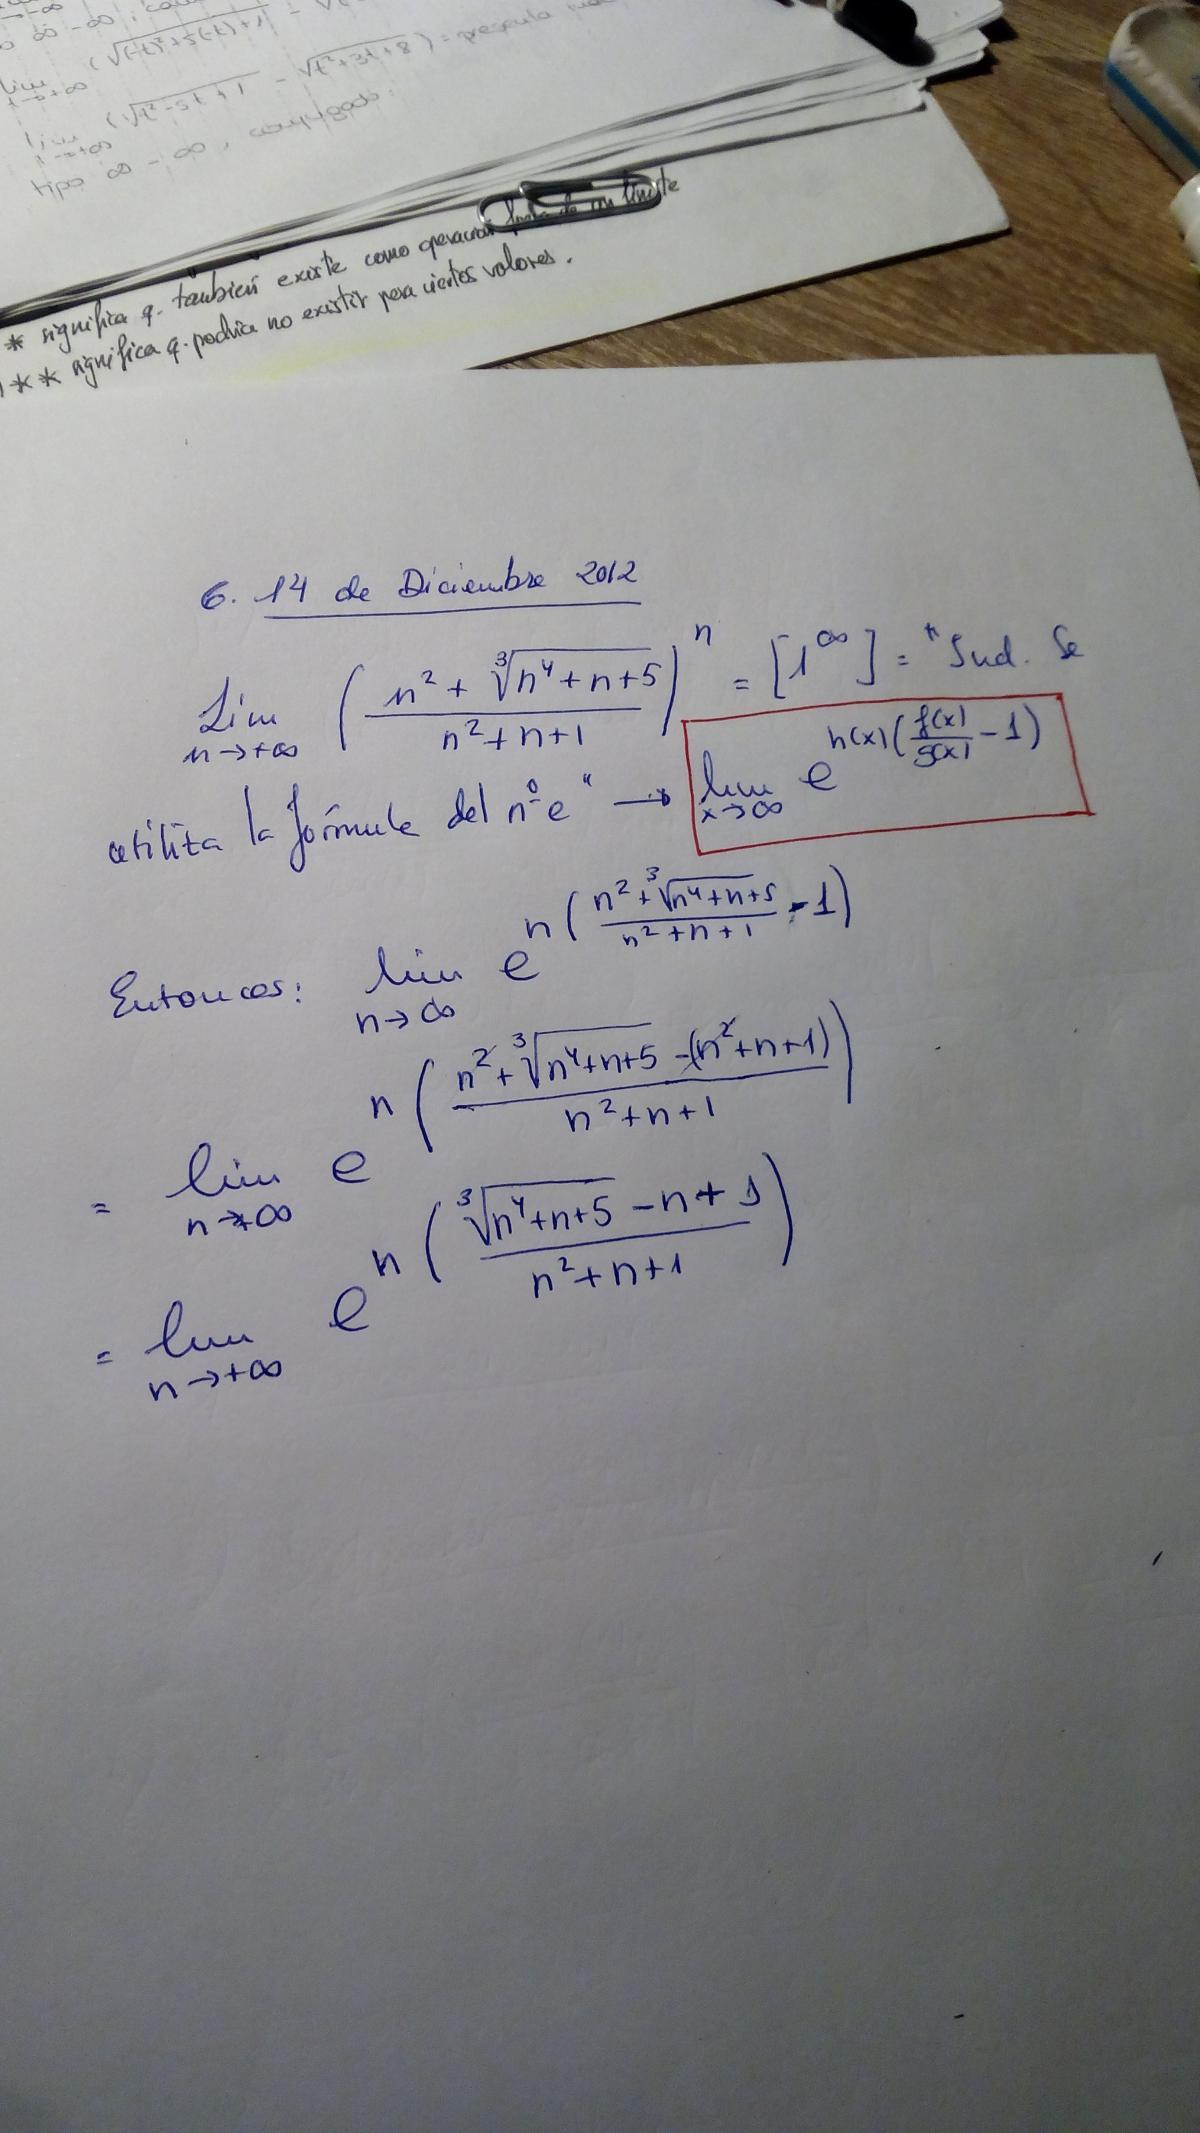 lim (√(-t)²+5(-t)+1 -
t→+∞
lim (√t²-5t+1 - √t²+3t+8) = presenta
t→+∞
tipo ∞ - ∞, conjugado.
* significa q. también existe como operación fuera de un límite
** significa q. podría no existir para ciertos valores.
6. 14 de Diciembre 2012
Lim n→+∞ ( (n² + ∛(n⁴+n+5)) / (n²+n+1) )ⁿ = [1^∞] = "Ind. Se
utiliza la fórmula del nº e" → lim x→∞ e^( h(x)( f(x)/g(x) - 1 ) )
Entonces: lim n→∞ e^( n( (n²+∛(n⁴+n+5)) / (n²+n+1) - 1 ) )
= lim n→+∞ e^( n( (n²+∛(n⁴+n+5) -(n²+n+1)) / (n²+n+1) ) )
= lim n→+∞ e^( n( (∛(n⁴+n+5) -n+1) / (n²+n+1) ) )